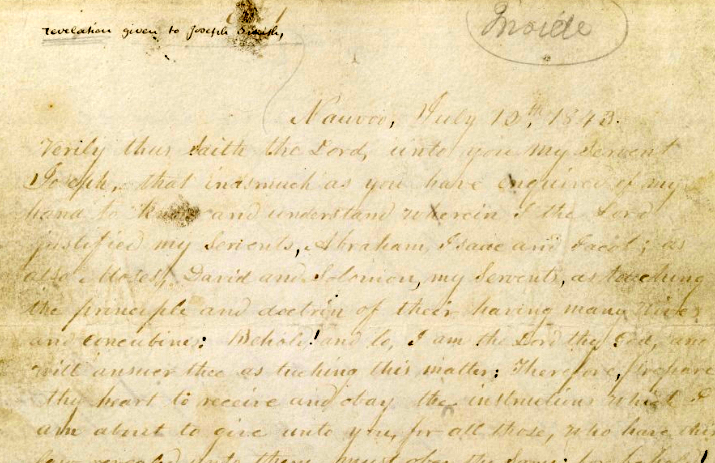 revelation given to Joseph Smith,
Inside
Nauvoo, July 12th, 1843.
Verily thus saith the Lord, unto you my Servent
Joseph, that inasmuch as you have enquired of my
hand to know and understand wherein I the Lord
justified my Servents, Abraham Isaac and Jacob; as
also Moses, David and Solomon, my Servents, as touching
the principle and doctrin of their having many Wives
and concubines: Behold! and lo, I am the Lord thy God, and
will answer thee as touching this matter; Therefore, prepare
thy heart to receive and obay the instructions which I
am about to give unto you, for all those, who have this
law revealed unto them, must obey the same;